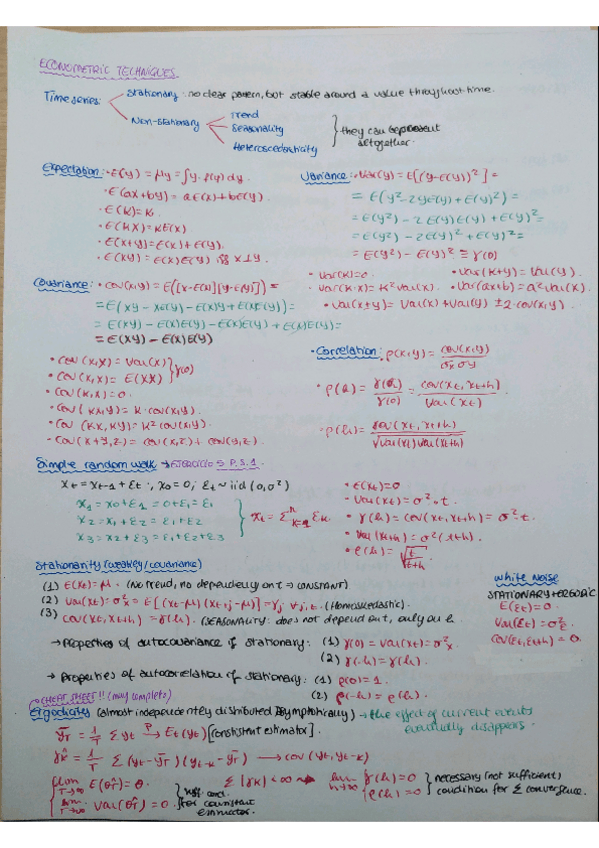 ECONOMETRIC TECHNIQUES
Time series:
Stationary: no clear pattern, but stable around a value throughout time.
Non-stationary
Trend
Seasonality
Heteroscedasticity
they can be present altogether.
Expectation: · E(y) = μy = ∫y·f(y) dy.
· E(ax+by) = aE(x)+bE(y)
· E(k) = k.
· E(kX) = kE(x)
· E(x+y) = E(x)+E(y).
· E(xy) = E(x)E(y) iff x⊥y.
Variance: · Var(y) = E[(y-E(y))²] =
= E(y² - 2yE(y) + E(y)²) =
= E(y²) - 2E(y)E(y) + E(y)² =
= E(y²) - 2E(y)² + E(y)² =
= E(y²) - E(y)² ≅ γ(0)
· Var(k)=0. · Var(k+y) = Var(y).
· Var(k·x) = k² Var(x). · Var(ax+b) = a² Var(x).
· Var(x±y) = Var(x) + Var(y) ± 2·cov(x,y).
Covariance: · cov(x,y) = E([x-E(x)][y-E(y)]) =
= E(xy - xE(y) - E(x)y + E(x)E(y)) =
= E(xy) - E(x)E(y) - E(x)E(y) + E(x)E(y) =
= E(xy) - E(x)E(y)
· Cov(x,x) = Var(x)
· Cov(x,x) = E(XX)
} γ(0)
· Cov(k,x) = 0.
· Cov(kx,y) = k·cov(x,y).
· Cov(kx,ky) = k² cov(x,y).
· Cov(x+y,z) = cov(x,z) + cov(y,z).
· Correlation: ρ(x,y) = cov(x,y) / σx σy
· ρ(h) = γ(h) / γ(0) = cov(xt, xt+h) / Var(xt)
· ρ(h) = cov(xt, xt+h) / √Var(xt)Var(xt+h)
Simple random walk → EJERCICIO 5 P.S.1.
Xt = Xt-1 + εt ; x0 = 0; εt ~ iid(0,σ²)
X1 = x0+ε1 = 0+ε1 = ε1
X2 = x1+ε2 = ε1+ε2
X3 = x2+ε3 = ε1+ε2+ε3
} xt = Σ εk.
· E(xt)=0
· Var(xt) = σ²·t.
· γ(h) = cov(xt, xt+h) = σ²·t.
· Var(xt+h) = σ²(t+h).
· ρ(h) = √t/t+h
Stationarity (weakly/covariance)
(1) E(xt) = μ. (no trend, no dependency on t → CONSTANT)
(2) Var(xt) = σ²x = E[(xt-μ)(xt+j-μ)] = γj ∀j,t. (Homoskedastic).
(3) cov(xt, xt+h) = γ(h). (SEASONALITY: does not depend on t, only on h
→ Properties of autocovariance of stationary: (1) γ(0) = Var(xt) = σ²x
(2) γ(-h) = γ(h).
→ Properties of autocorrelation of stationary: (1) ρ(0) = 1.
(2) ρ(-h) = ρ(h).
WHITE NOISE
STATIONARY + ERGODIC
E(εt) = 0.
Var(εt) = σ²ε.
cov(εt, εt+h) = 0.
→ CHEAT SHEET!! (muy completo)
Ergodicity (almost independently distributed asymptotically) → the effect of current events eventually disappears.
ȳT = 1/T Σ yt →P Et(yt) [consistent estimator].
γ̂k = 1/T Σ (yt - ȳT)(yt-k - ȳT) → cov(yt, yt-k)
lim T→∞ E(θ̂T) = θ.
lim T→∞ Var(θ̂T) = 0.
} suff. cond. for consistent estimator.
Σ|γk| < ∞ lim h→∞ γ(h) = 0
ρ(h) = 0.
} necessary (not sufficient) condition for Σ convergence.